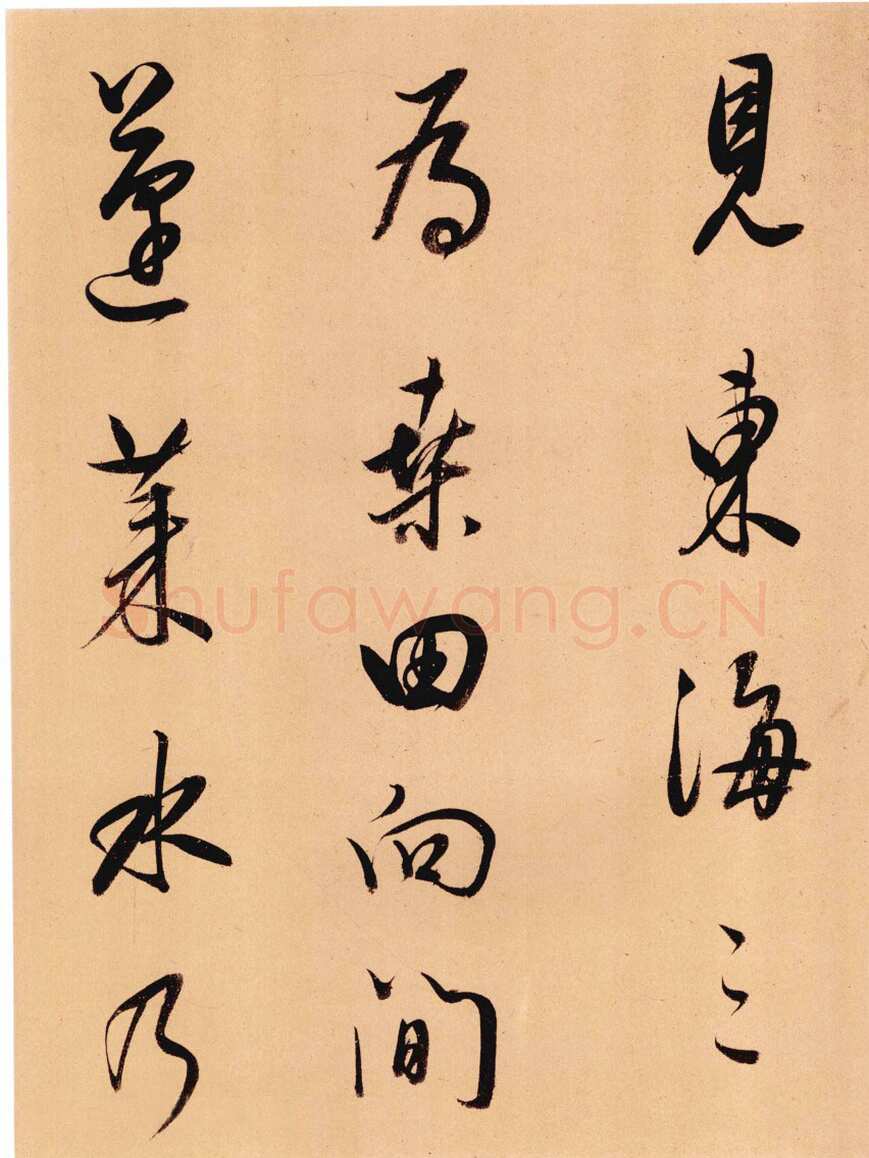 見東海三
為桑田向間
蓬萊水乃
shufawang.CN